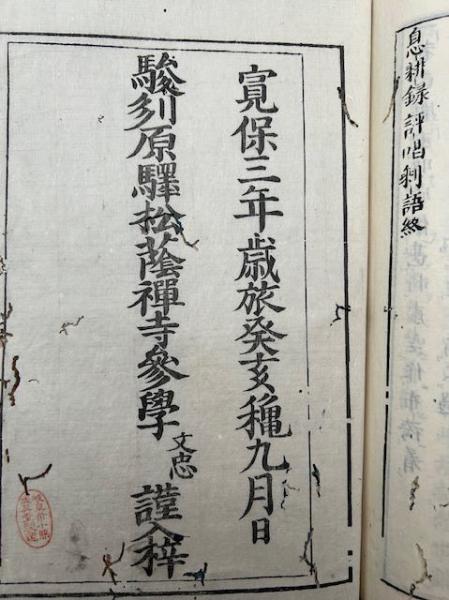 息耕錄評唱剩語終
寛保三年歲旅癸亥穐九月日
駿刕原驛松蔭禪寺參學文忠謹入梓